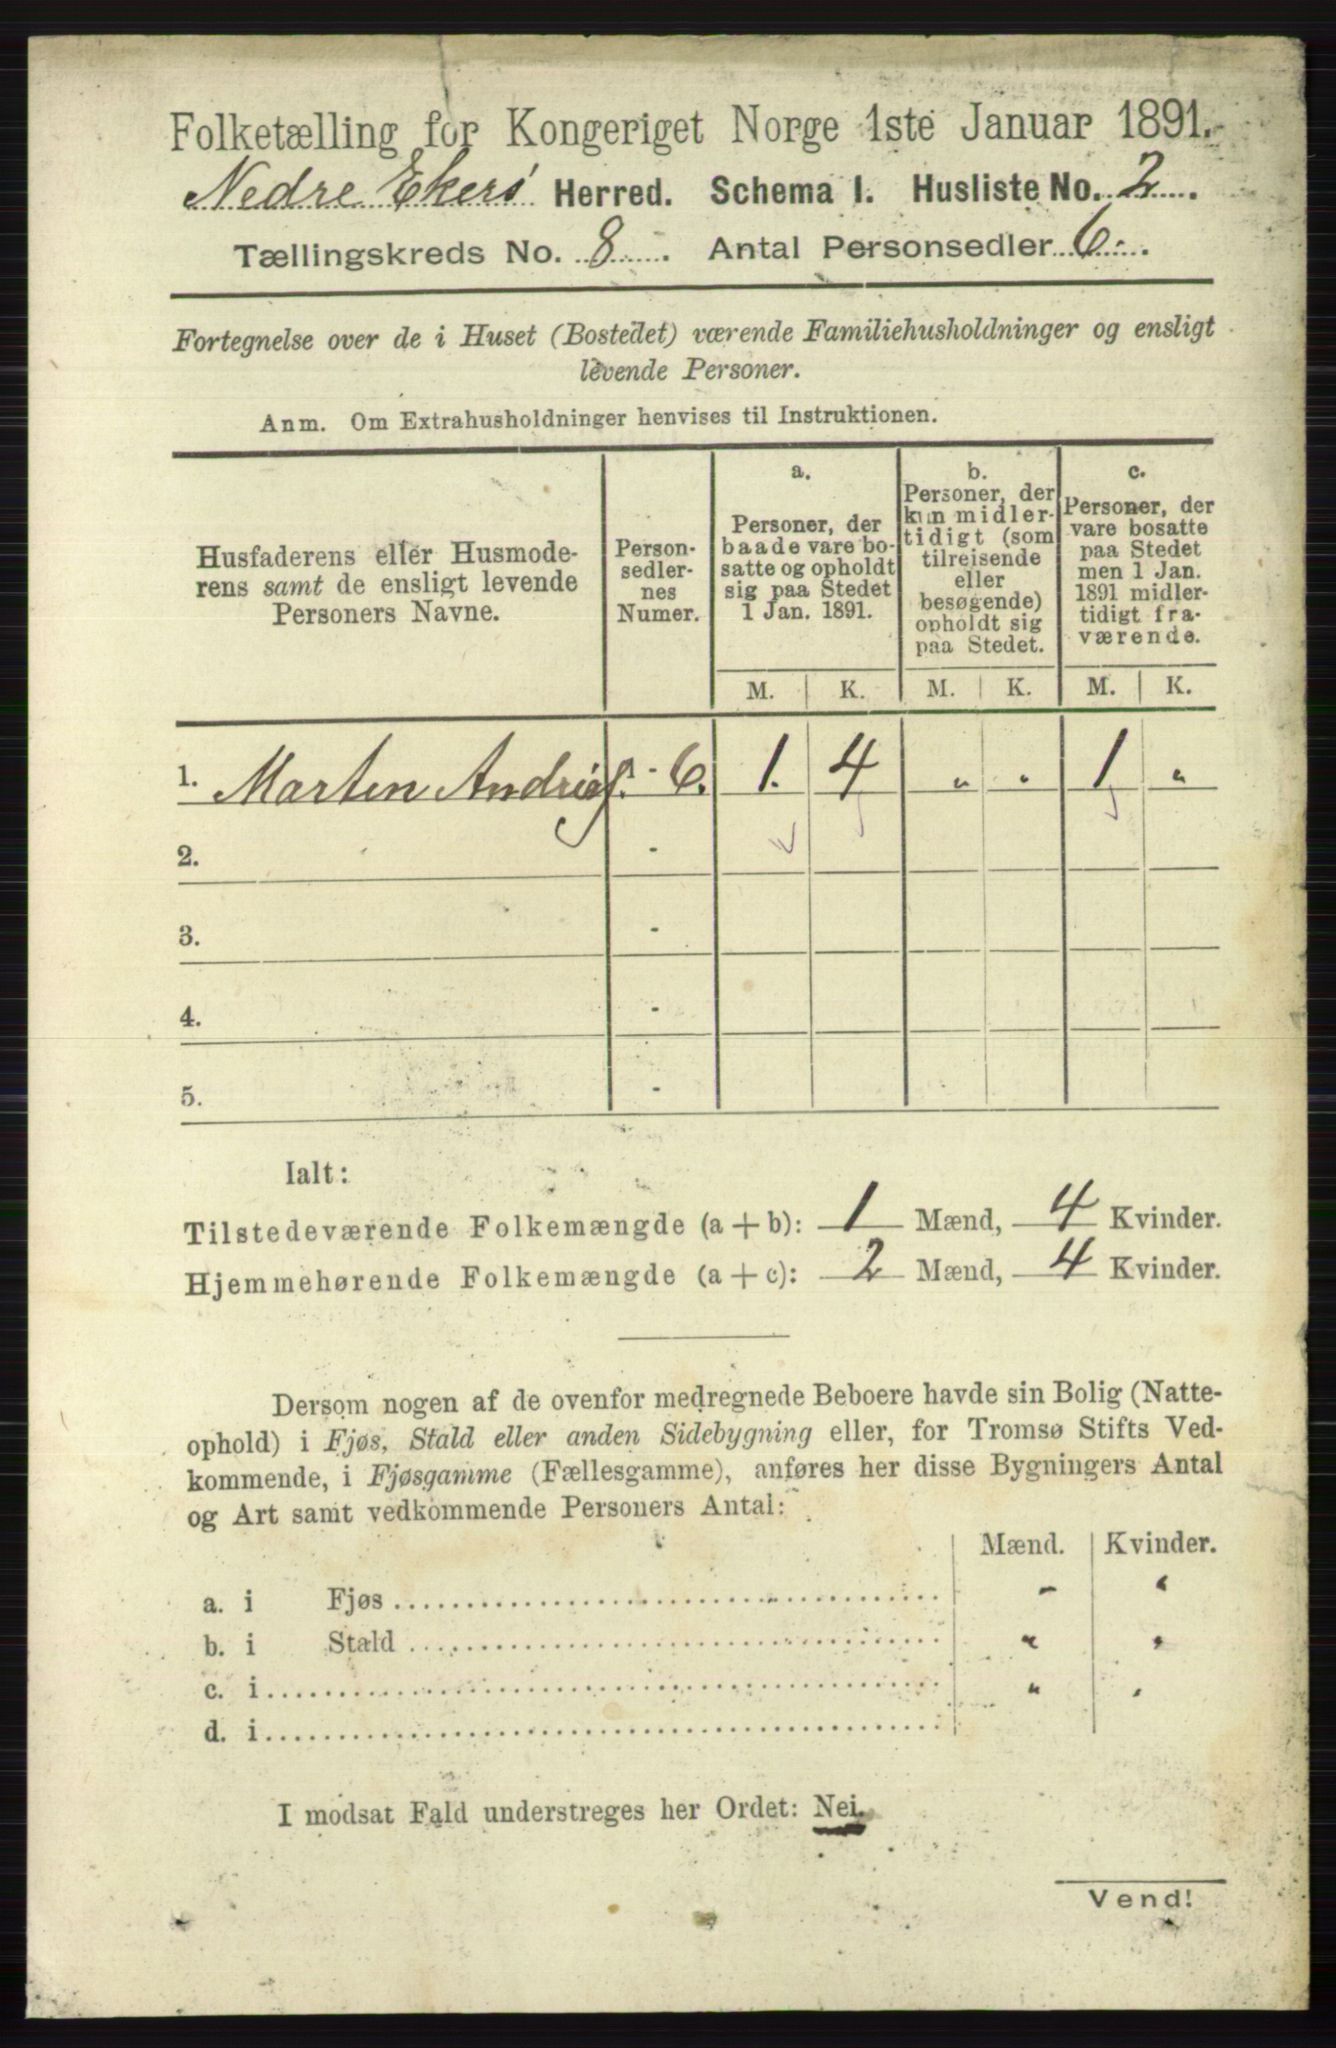 Folketælling for Kongeriget Norge 1ste Januar 1891.
Nedre Ekers Herred. Schema I. Husliste No. 2.
Tællingskreds No. 8. Antal Personsedler 6.
Fortegnelse over de i Huset (Bostedet) værende Familiehusholdninger og ensligt
levende Personer.
Anm. Om Extrahusholdninger henvises til Instruktionen.
Husfaderens eller Husmode-
rens samt de ensligt levende
Personers Navne.
Person-
sedler-
nes
Numer.
a.
Personer, der
baade vare bo-
satte og opholdt
sig paa Stedet
1 Jan. 1891.
b.
Personer, der
kun midler-
tidigt (som
tilreisende
eller
besøgende)
opholdt sig
paa Stedet.
c.
Personer, der
vare bosatte
paa Stedet
men 1 Jan.
1891 midler-
tidigt fra-
værende.
M. K. M. K. M. K.
1. Marten - 6. 1. 4 „ „ 1 „
2. -
3. -
4. -
5. -
Ialt:
Tilstedeværende Folkemængde (a + b): 1 Mænd, 4 Kvinder.
Hjemmehørende Folkemængde (a + c): 2 Mænd, 4 Kvinder.
Dersom nogen af de ovenfor medregnede Beboere havde sin Bolig (Natte-
ophold) i Fjøs, Stald eller anden Sidebygning eller, for Tromsø Stifts Ved-
kommende, i Fjøsgamme (Fællesgamme), anføres her disse Bygningers Antal
og Art samt vedkommende Personers Antal:
Mænd. Kvinder.
a. i Fjøs - „
b. i Stald „ „
c. i „ „
d. i
I modsat Fald understreges her Ordet: Nei.
Vend!